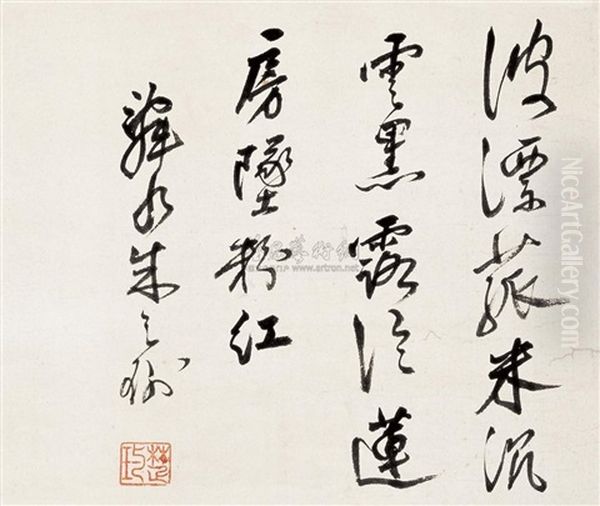 波漂菰米沉
雲黑露冷蓮
房墜粉紅
舜水朱之瑜
www.artron.net
NiceArtGallery.com